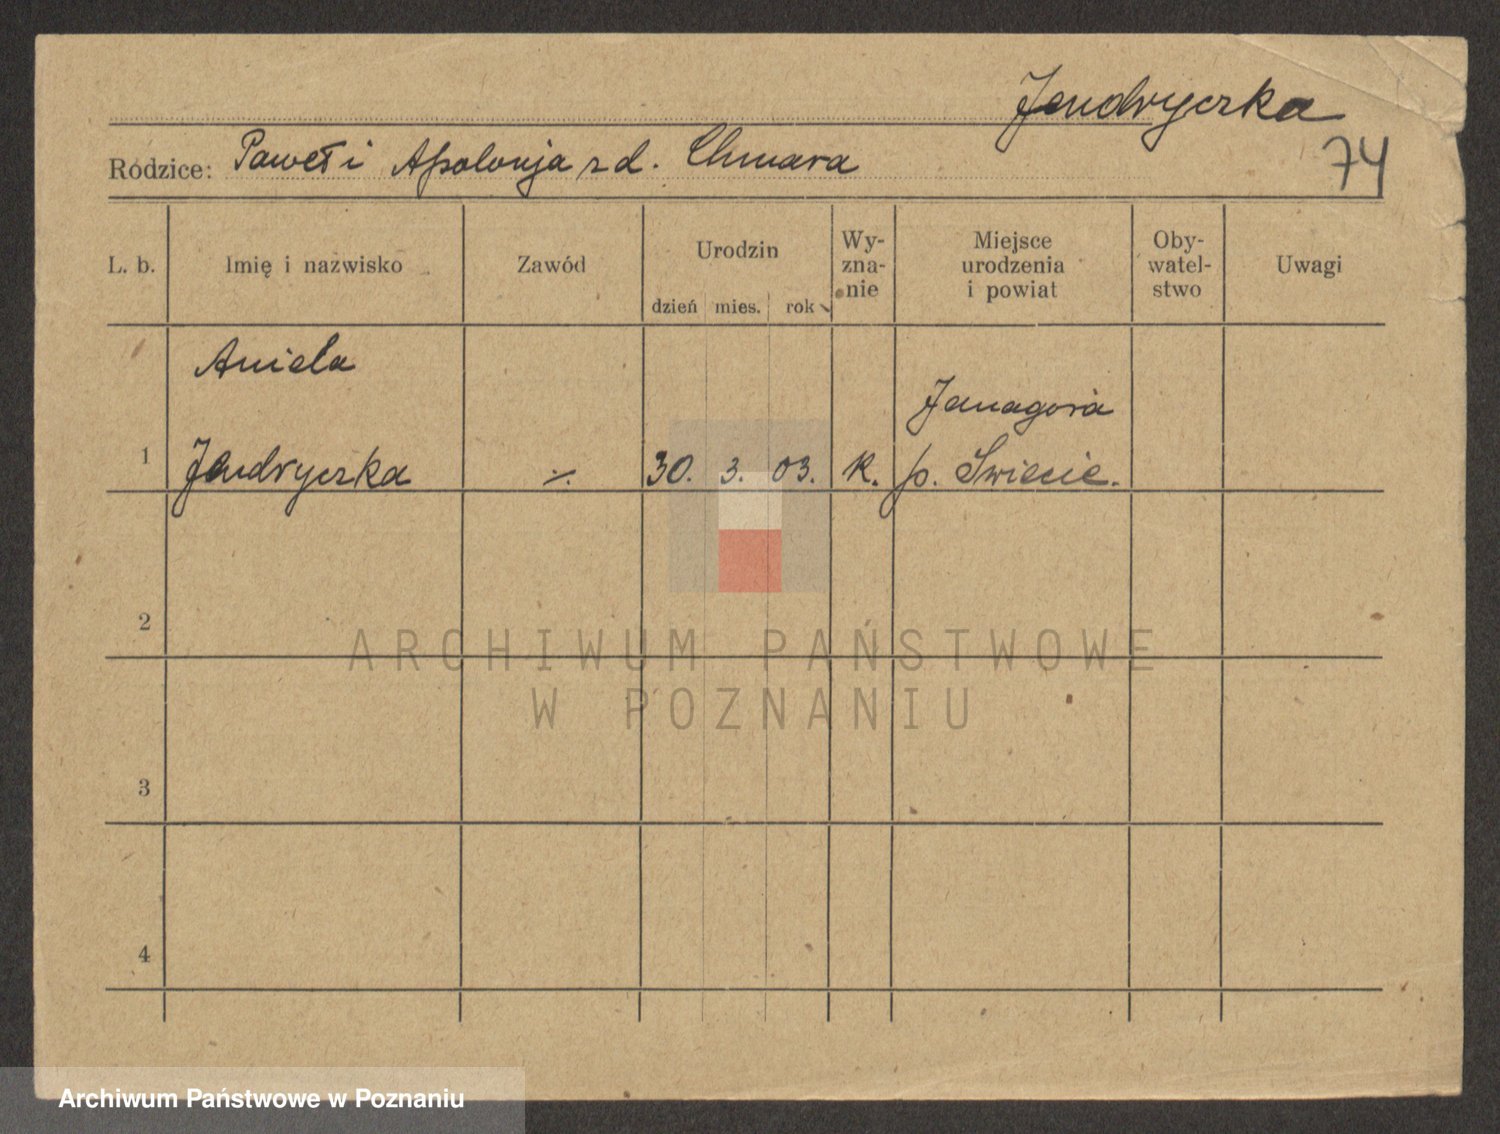 Jendryczka
Rodzice: Paweł i Apolonja z d. Chmara
74
L. b. Imię i nazwisko Zawód Urodzin dzień mies. rok Wy-zna-nie Miejsce urodzenia i powiat Oby-watel-stwo Uwagi
Aniela
Janagóra
1 Jendryczka ٪. 30. 3. 03. K. p. Świecie.
2
ARCHIWUM PAŃSTWOWE
W POZNANIU
3
4
Archiwum Państwowe w Poznaniu